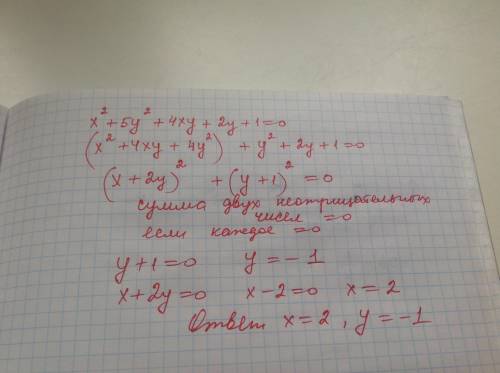 x² + 5y² + 4xy + 2y + 1 = 0
(x² + 4xy + 4y²) + y² + 2y + 1 = 0
(x + 2y)² + (y + 1)² = 0
сумма двух неотрицательных
чисел = 0
если каждое = 0
y + 1 = 0 y = −1
x + 2y = 0 x − 2 = 0 x = 2
Ответ x = 2, y = −1